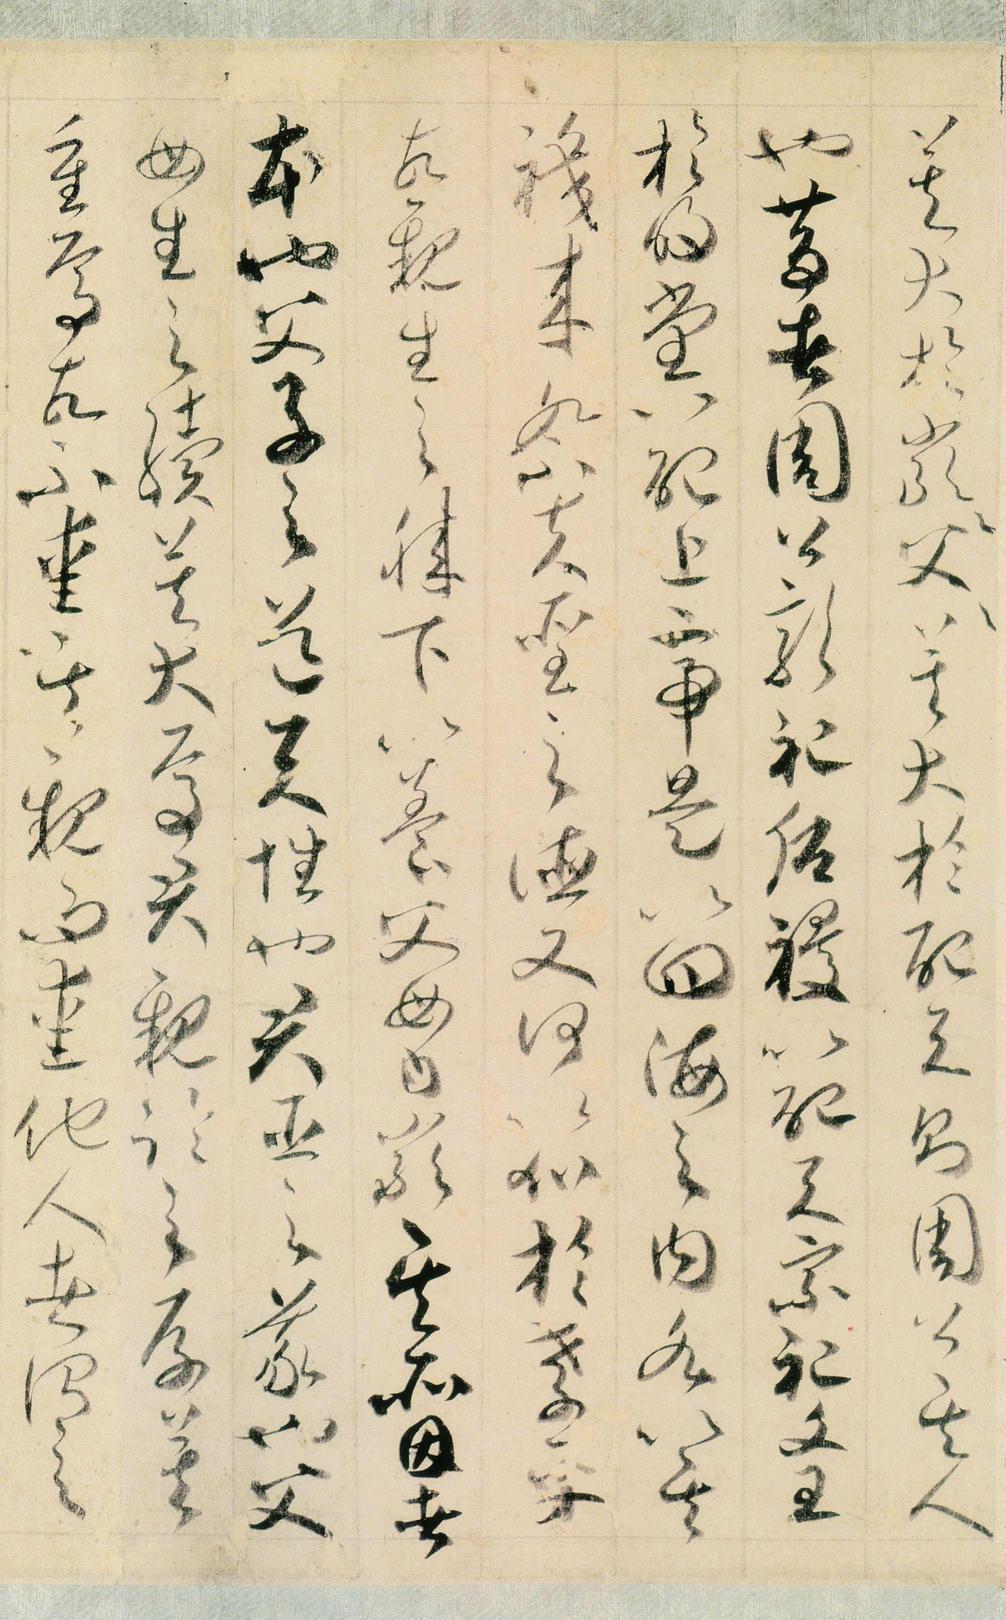 莫大於嚴〻父〻莫大於配天則周公其人
也昔者周公郊祀后稷以配天宗祀文王
於明堂以配上帝是以四海之內各以其
職来祭夫聖之德又何以加於孝乎
故親生之膝下以養父母日嚴其所因者
本也父子之道天性也君臣之義也父
母生之續莫大焉君親臨之厚莫
重焉故不愛其親而愛他人者謂之